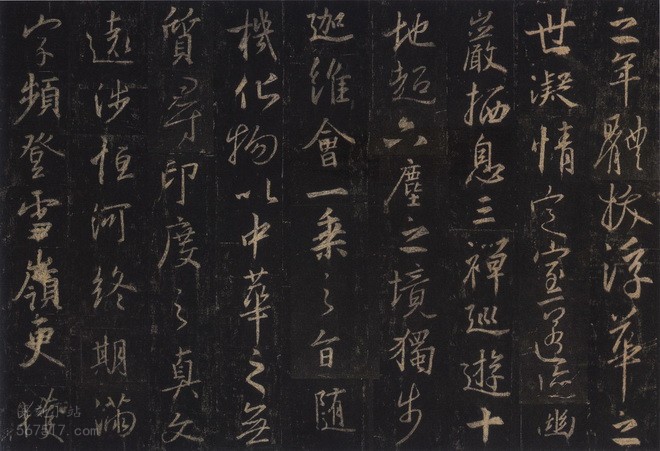 之年體拔浮華之
世凝情定室匿迹幽
巖栖息三禪巡遊十
地超六塵之境獨步
迦維會一乘之旨随
機化物以中華之無
質尋印度之真文
遠涉恒河終期滿
字頻登雪嶺更獲
567517.com